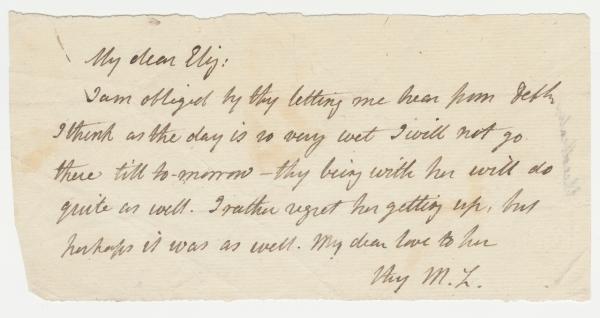 My dear Eliz:
I am obliged by thy letting me hear from Deb.h
I think as the day is so very wet I will not go
there till to-morrow - thy being with her will do
quite as well. I rather regret her getting up, but
perhaps it was as well. My dear love to her
thy M. L.